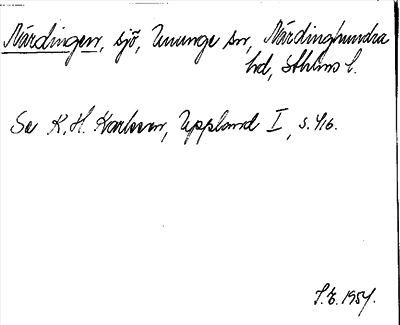 Närdingen, sjö, Ununge sn, Närdinghundra
hd, Sthlms l.
Se K. H. Karlsson, Uppland I, s. 416.
S.E. 1954.